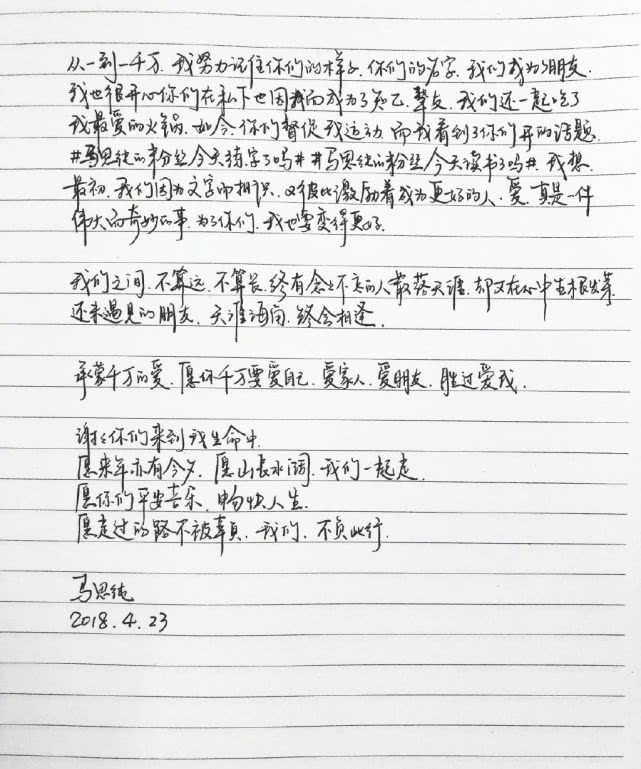 从一到一千万，我努力记住你们的样子，你们的名字，我们成为了朋友，
我也很开心你们在私下也因我而成为了知己，挚友，我们还一起吃了
我最爱的火锅，如今，你们督促我运动，而我看到了你们开的话题
#马思纯的粉丝今天练字了吗# #马思纯的粉丝今天读书了吗#，我想，
最初，我们因为文字而相识，又彼此激励着成为更好的人，爱，真是一件
伟大而奇妙的事，为了你们，我也要变得更好。
我们之间，不算远，不算长，终有念念不忘的人散落天涯，却又在心中生根发芽，
还未遇见的朋友，天涯海角，终会相逢。
承蒙千万的爱，愿你千万要爱自己，爱家人，爱朋友，胜过爱我。
谢谢你们来到我生命中。
愿来年亦有今夕，愿山长水阔，我们一起走。
愿你们平安喜乐，畅快人生。
愿走过的路不被辜负，我们，不负此行。
马思纯
2018.4.23